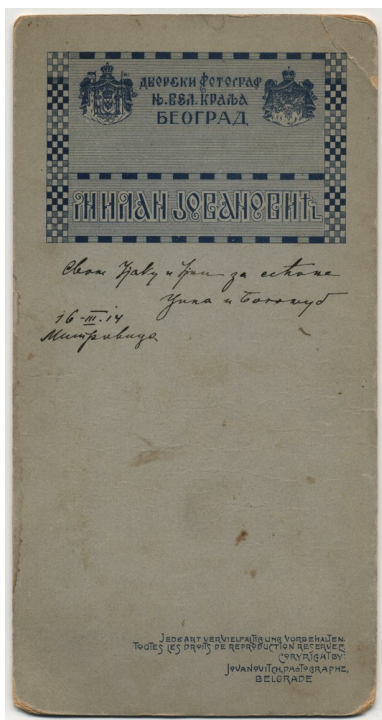 ДВОРСКИ ФОТОГРАФ
Њ. ВЕЛ. КРАЉА
БЕОГРАД
МИЛАН ЈОВАНОВИЋ
Свом и за сећање
и Богољуб
16-III-14
Митровица
JEDE ART VERVIELFÄLTIGUNG VORBEHALTEN.
TOUTES LES DROITS DE REPRODUCTION RESERVEE
COPYRIGHT BY:
JOVANOVITCH, PHOTOGRAPHE,
BELGRADE